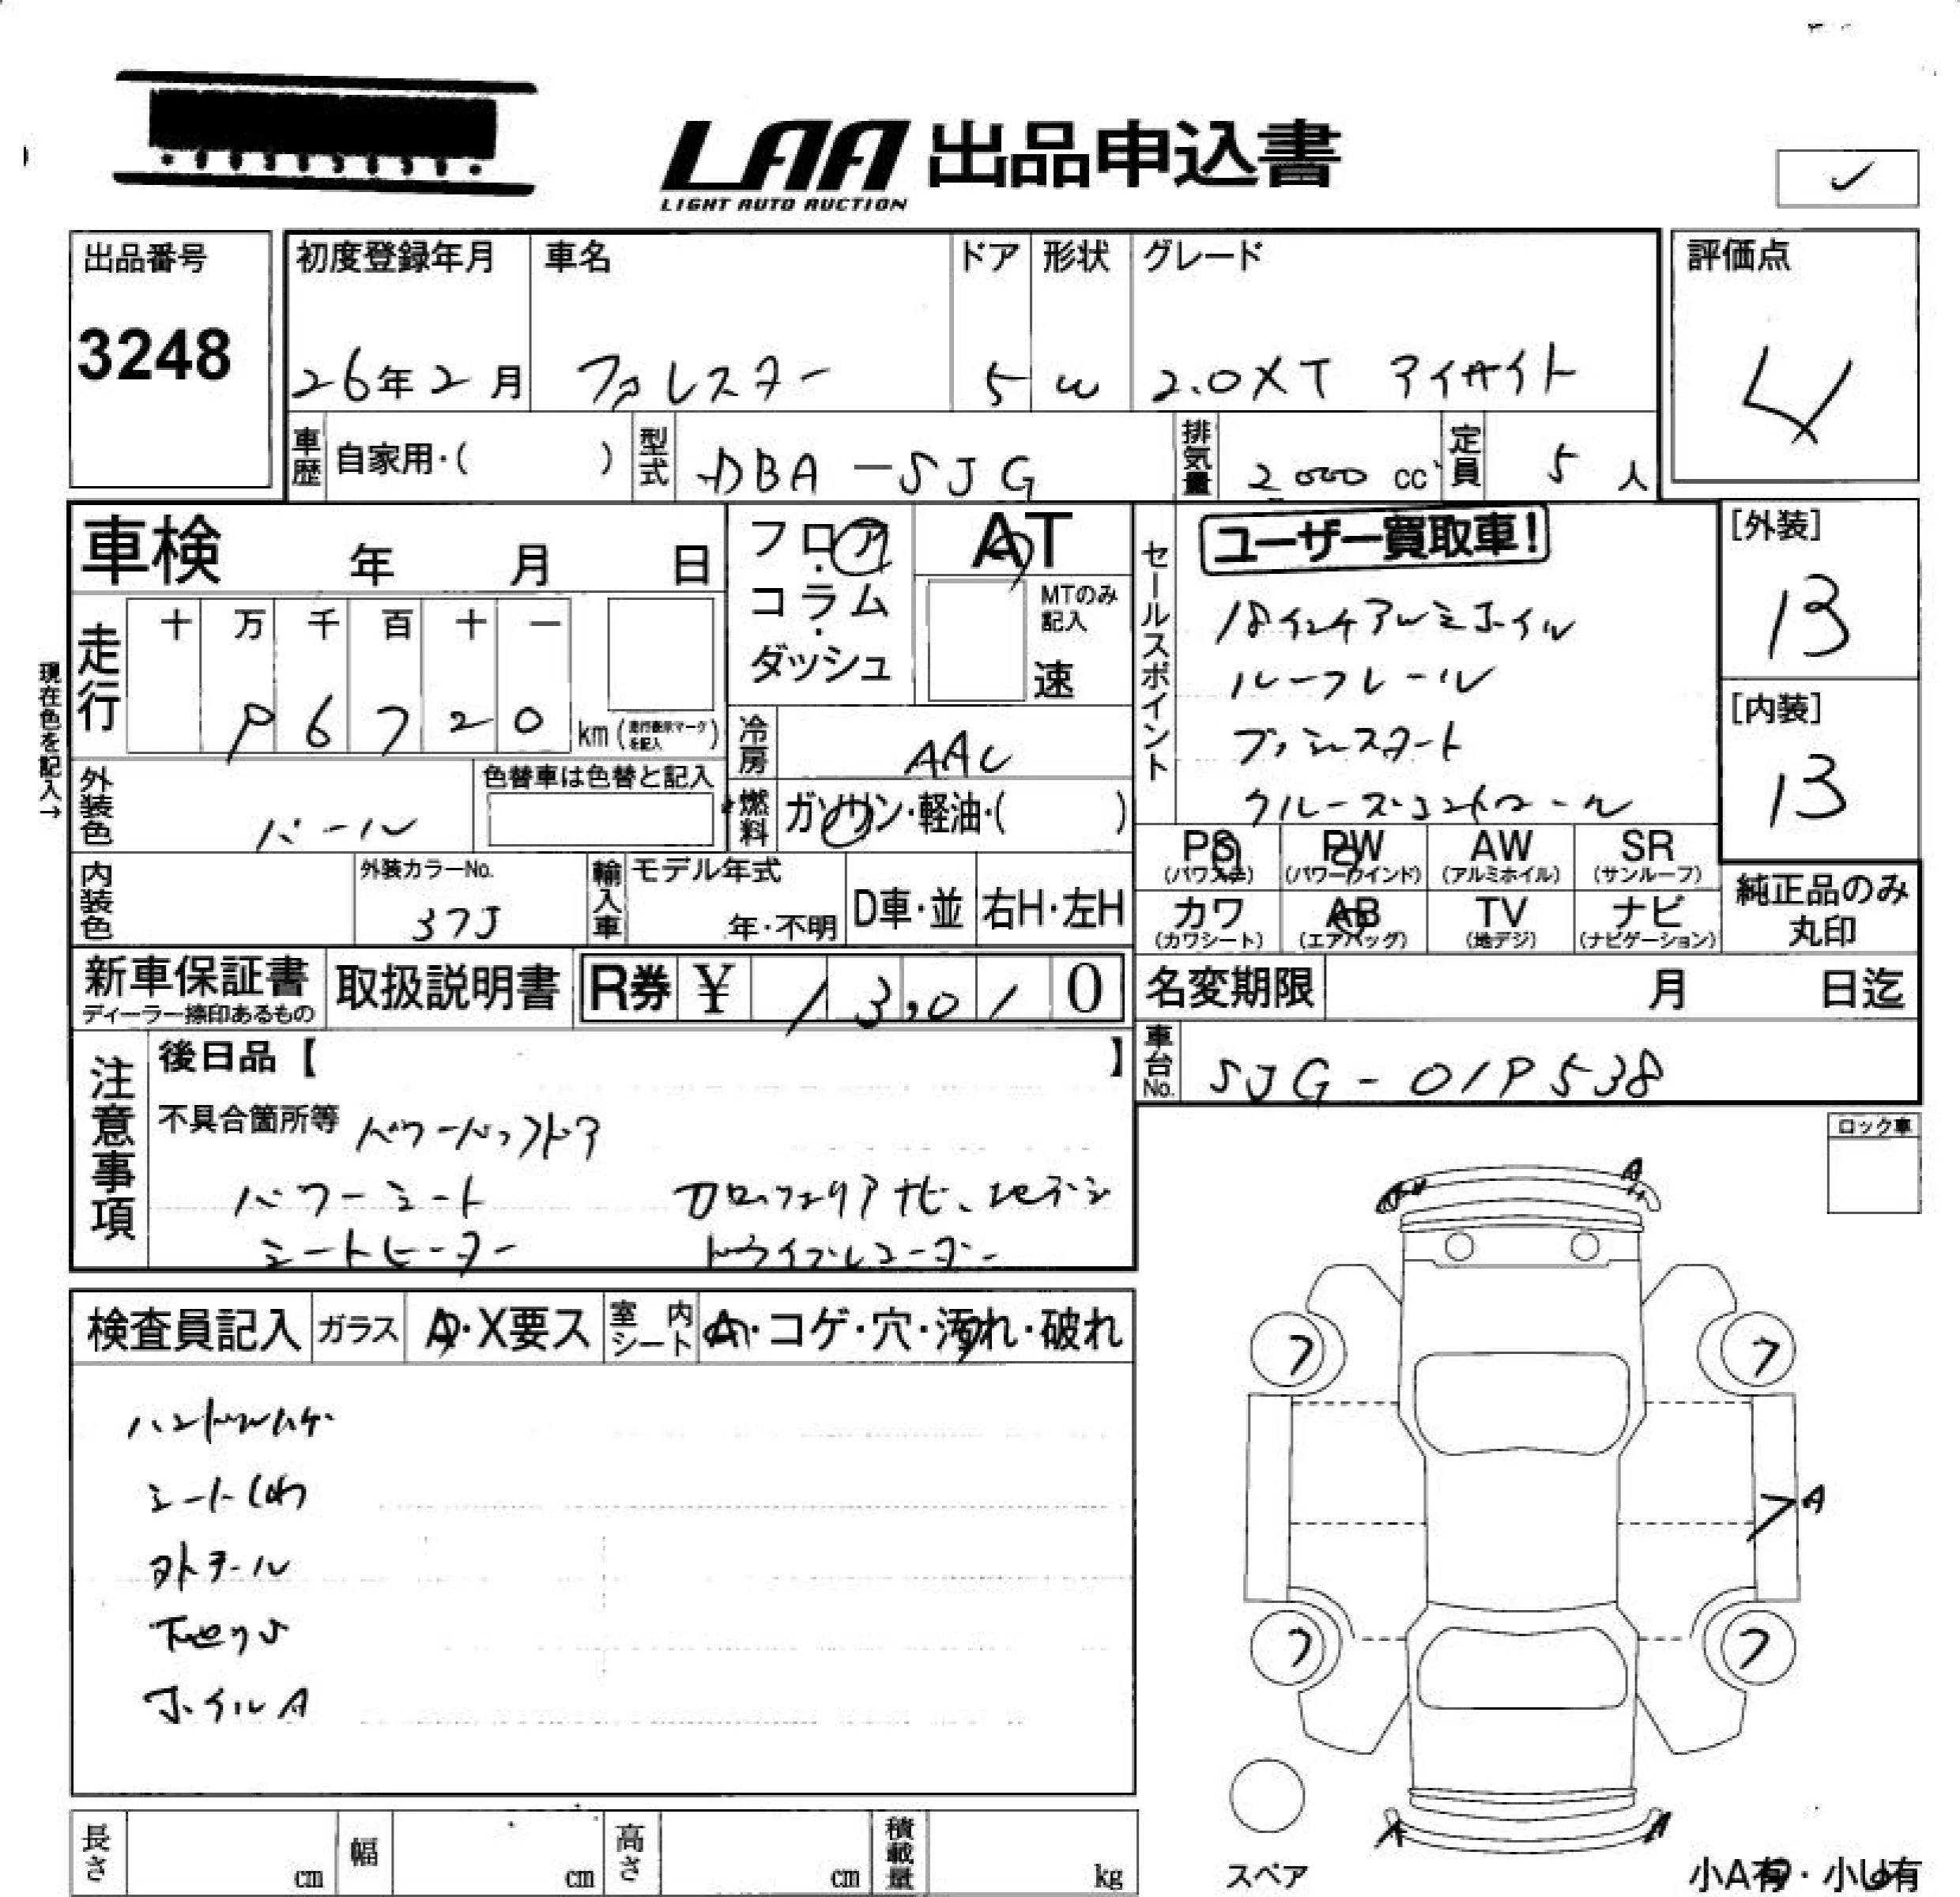 LAA 出品申込書
LIGHT AUTO AUCTION
✓
出品番号
3248
初度登録年月
26年2月
車名
フォレスター
ドア
5
形状
W
グレード
2.0XT アイサイト
評価点
4
車歴 自家用・( )
型式 DBA-SJG
排気量 2000 cc
定員 5 人
車検 年 月 日
フロア・コラム・ダッシュ
AT
MTのみ記入
速
セールスポイント
ユーザー買取車!
18インチアルミホイル
ルーフレール
プッシュスタート
クルーズコントロール
[外装]
13
[内装]
13
現在色を記入→
走行
十 万 千 百 十 一
96720 km (走行表示マークを記入)
冷房 AAC
外装色 パール
色替車は色替と記入
燃料 ガソリン・軽油・( )
PS (パワステ)
PW (パワーウインド)
AW (アルミホイル)
SR (サンルーフ)
カワ (カワシート)
AB (エアバッグ)
TV (地デジ)
ナビ (ナビゲーション)
純正品のみ丸印
内装色
外装カラーNo.
37J
輸入車
モデル年式
年・不明
D車・並
右H・左H
新車保証書
ディーラー捺印あるもの
取扱説明書
R券 ¥ 13,010
名変期限 月 日迄
車台No. SJG-019538
注意事項
後日品【 】
不具合箇所等 パワーバックドア
パワーシート カロッツェリアナビ、地デジ
シートヒーター ドライブレコーダー
ロック車
検査員記入
ガラス A・X要ス
室内シート A・コゲ・穴・汚れ・破れ
シート
下廻りS
ホイルA
A
フ フ
A
フ フ
A A
長さ cm
幅 cm
高さ cm
積載量 kg
スペア
小A有・小U有